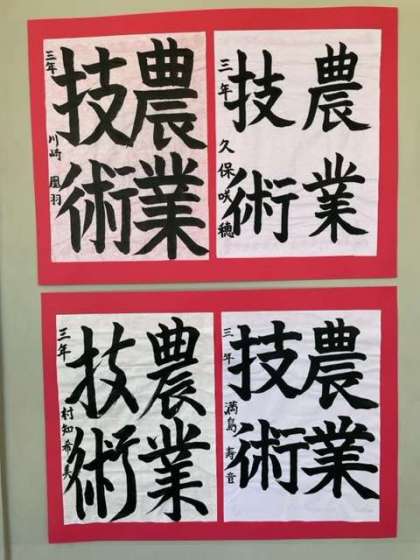 農業
技術
三年 久保咲穂
農業
技術
三年 川崎 凰羽
農業
技術
三年 満島 寿音
農業
技術
三年 村知希美